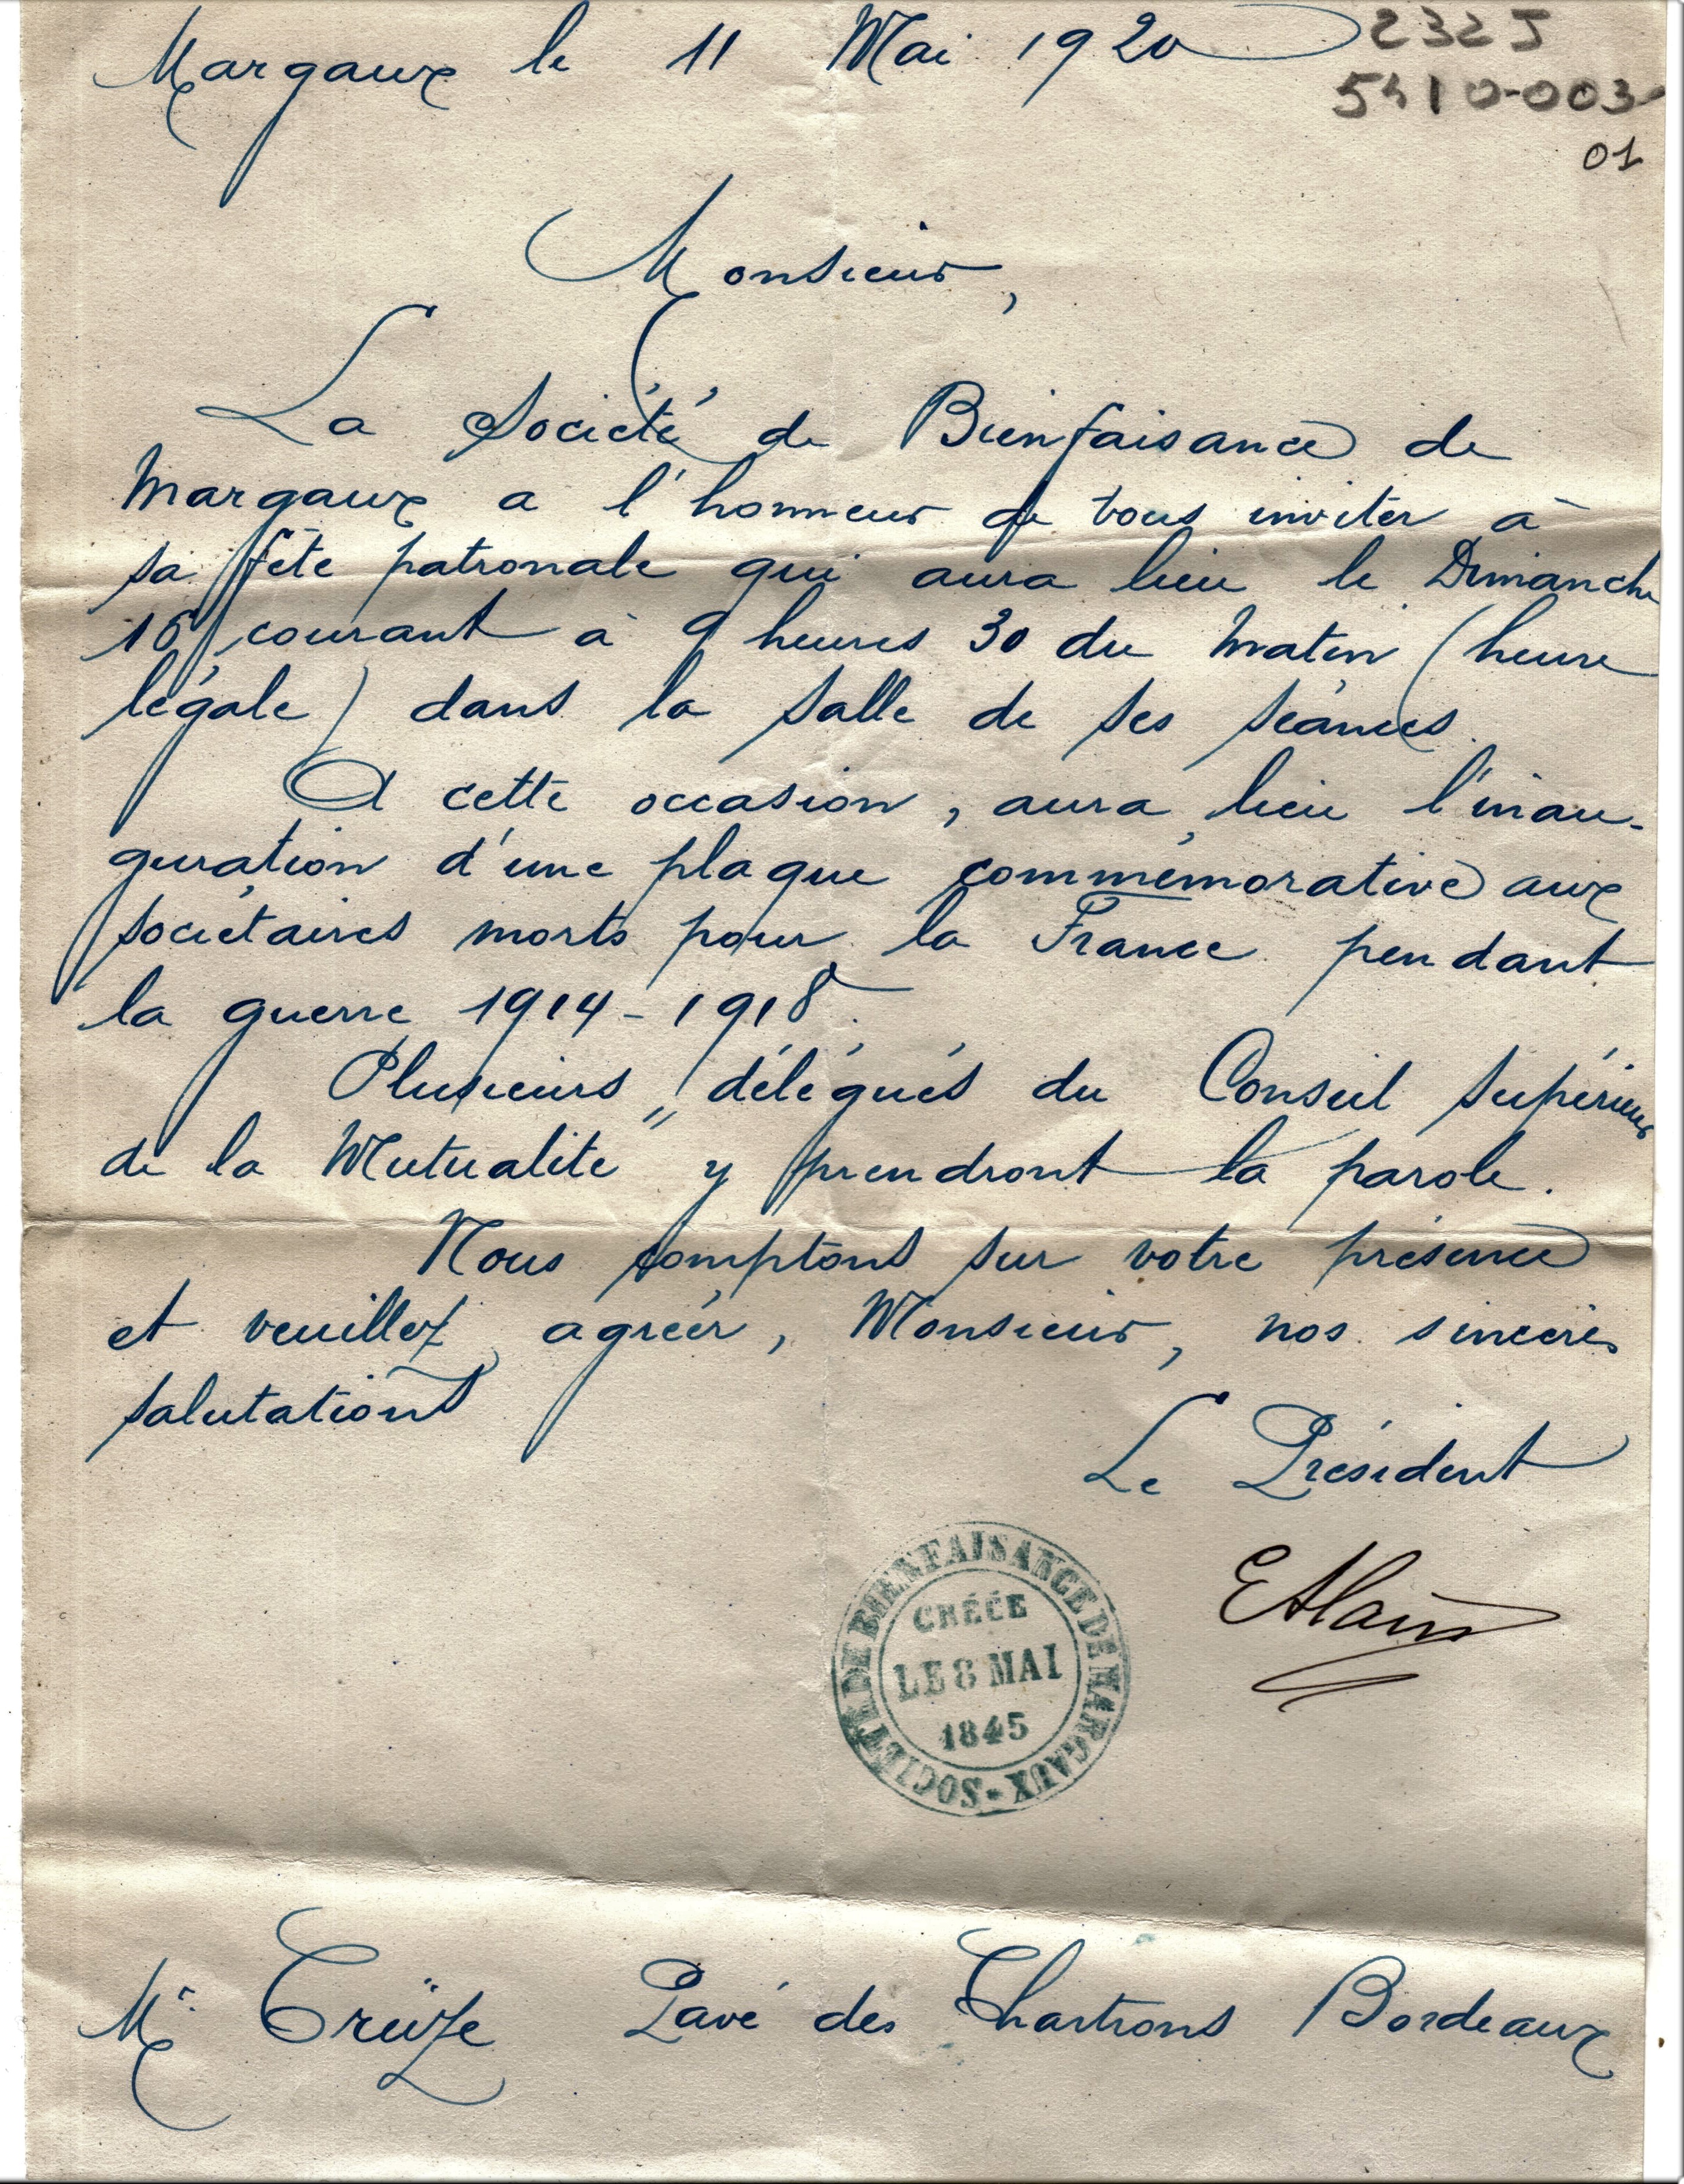 Margaux le 11 Mai 1920
232J
5410-003
01
Monsieur,
La Société de Bienfaisance de
Margaux a l'honneur de vous inviter à
sa fête patronale qui aura lieu le Dimanche
16 courant à 9 heures 30 du matin (heure
légale) dans la salle de ses séances.
A cette occasion, aura lieu l'inau-
guration d'une plaque commémorative aux
sociétaires morts pour la France pendant
la guerre 1914-1918.
Plusieurs "délégués du Conseil Supérieur
de la Mutualité" y prendront la parole.
Nous comptons sur votre présence
et veuillez agréer, Monsieur, nos sincères
salutations
Le Président
EAlain
SOCIÉTÉ DE BIENFAISANCE DE MARGAUX
CRÉÉE
LE 8 MAI
1845
Mr Crüze Pavé des Chartrons Bordeaux